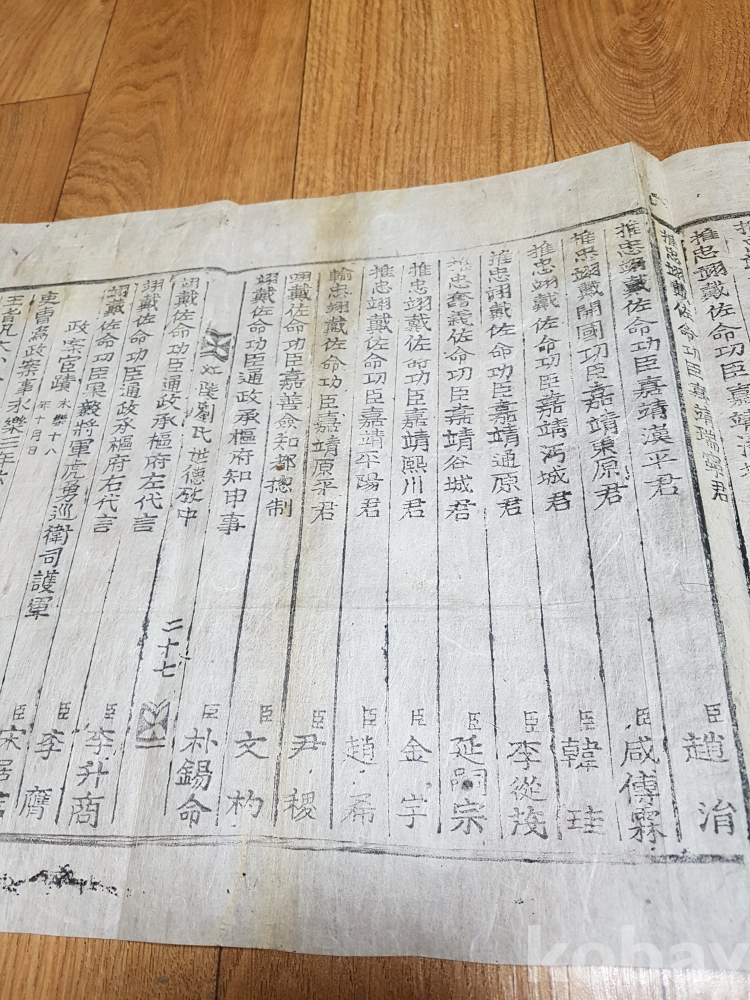 推忠翊戴佐命功臣嘉靖瑞寧君 臣 趙 涓
推忠翊戴佐命功臣嘉靖漢平君 臣 咸傅霖
推忠翊戴開國功臣嘉靖東原君 臣 韓 珪
推忠翊戴佐命功臣嘉靖沔城君 臣 李從茂
推忠翊戴佐命功臣嘉靖通原君 臣 延嗣宗
推忠奮義佐命功臣嘉靖谷城君 臣 金 宇
推忠翊戴佐命功臣嘉靖熙川君 臣 趙 希
推忠翊戴佐命功臣嘉靖平陽君 臣 尹 稷
輸忠翊戴佐命功臣嘉靖原平君 臣 文 杓
翊戴佐命功臣嘉善僉知都摠制
翊戴佐命功臣通政承樞府知申事 臣 朴錫命
江陵劉氏世德攷中 二十七
翊戴佐命功臣通政承樞府左代言 臣 李升商
翊戴佐命功臣通政承樞府右代言 臣 李 膺
翊戴佐命功臣果毅將軍虎勇巡衛司護軍 臣 宋居信
政案宦蹟 永樂十八年十月日
吏曹爲政案事永樂三年
王旨凡大小
kobay